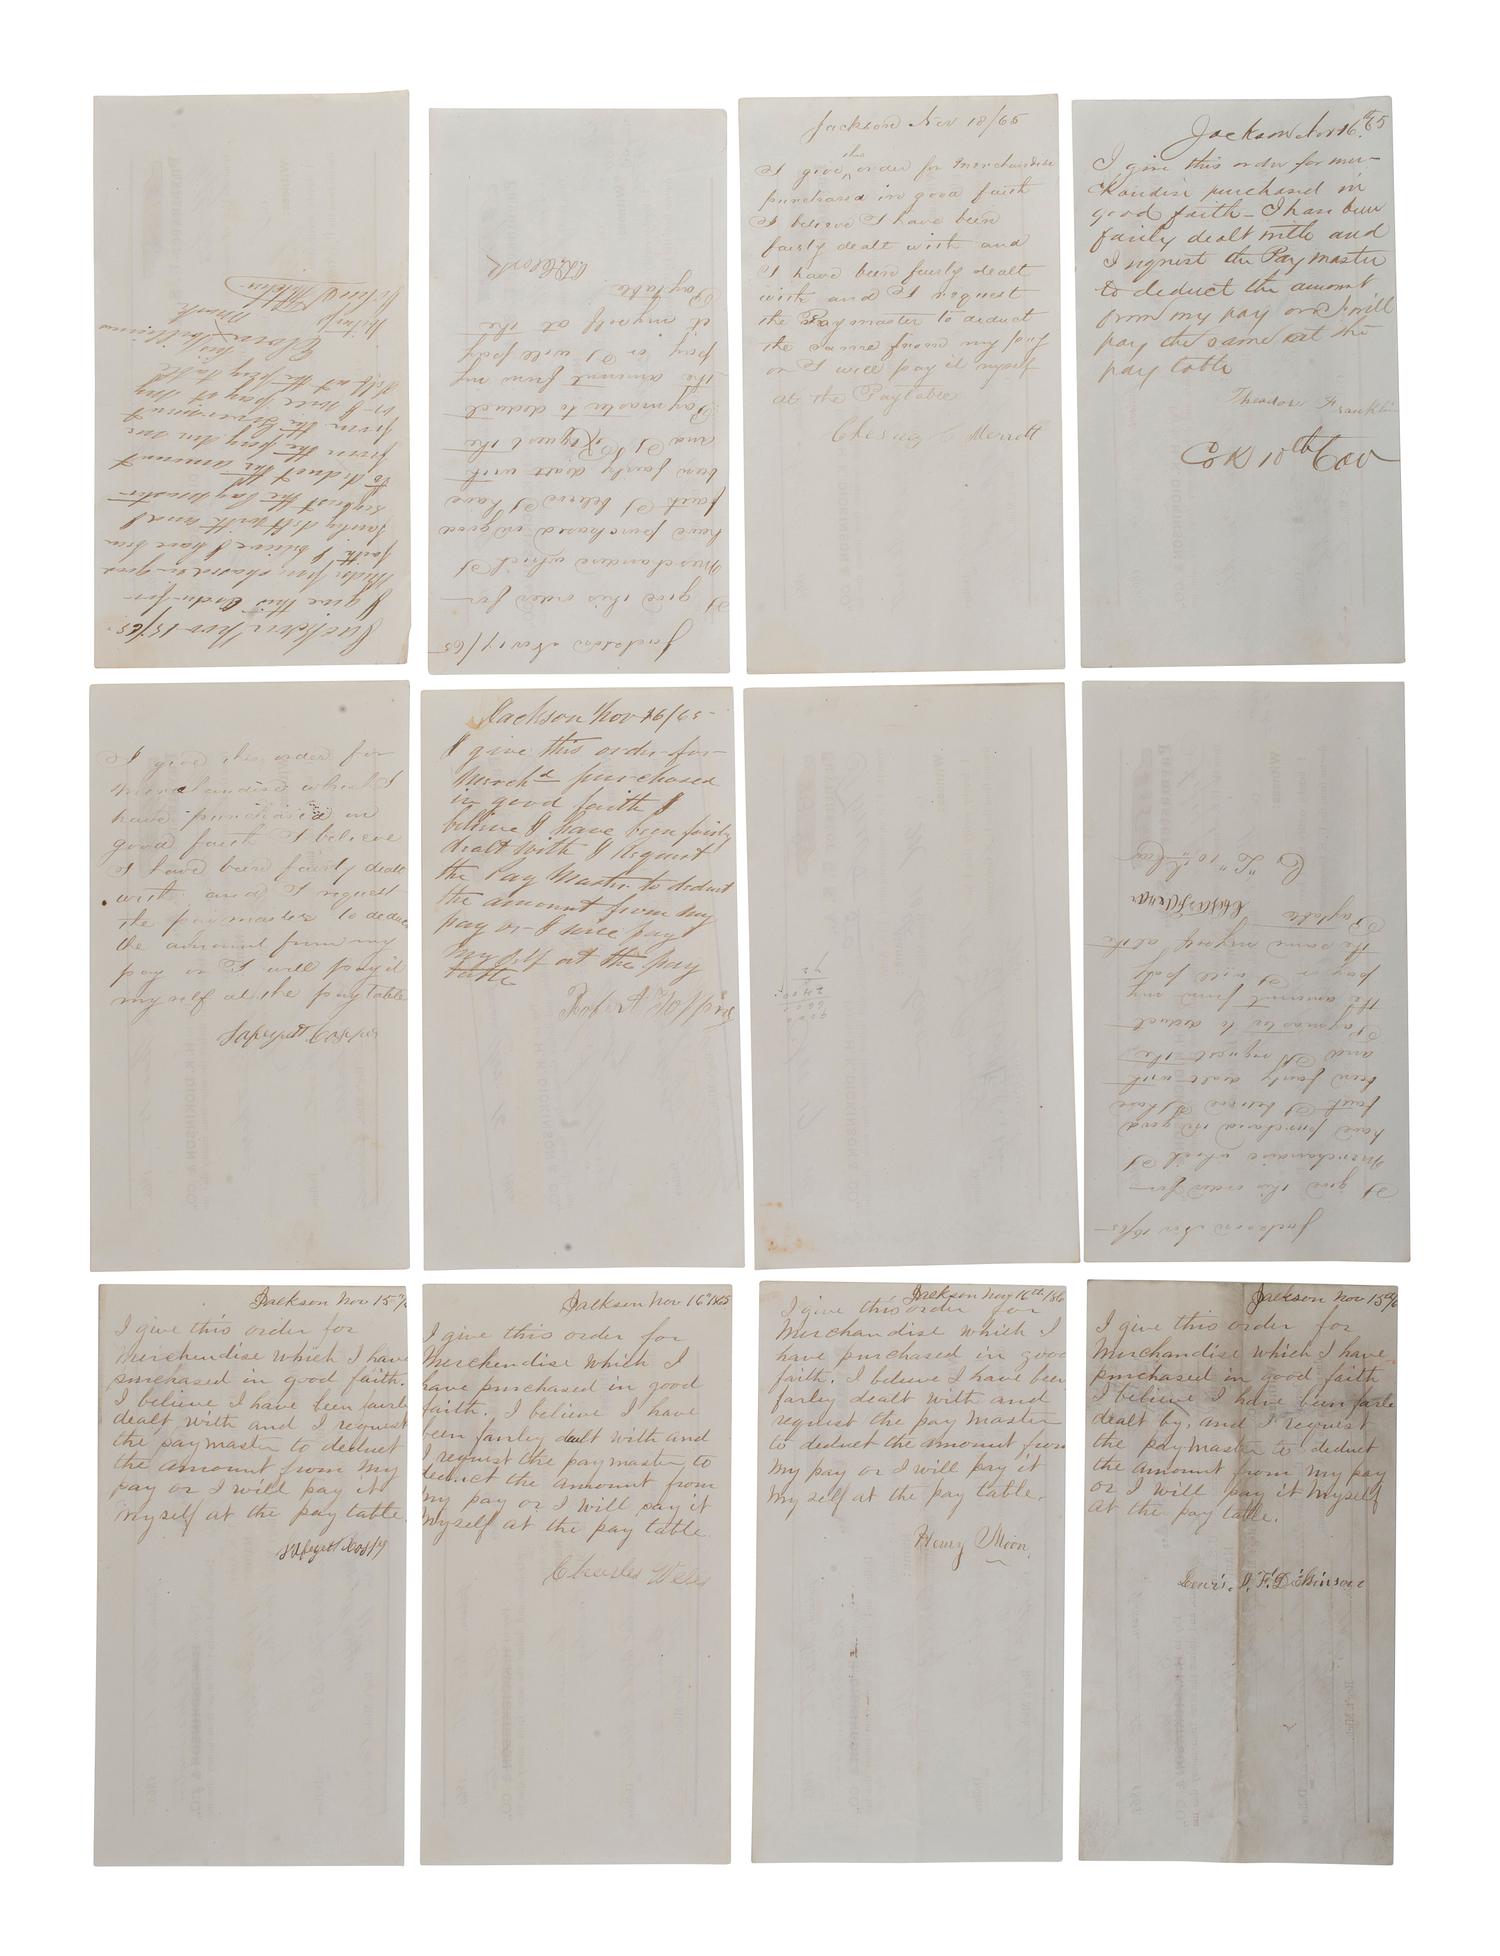 Jackson Nov 15/65
I give this Order for
purchased in good
faith I believe I have been
fairly delt with and I
request the Pay Master
to deduct the amount
from the pay due me
from the Government
or I will pay at my
self at the Pay table
his
mark
Jackson Nov 17/65
I give this order for
Merchandise which I
have purchased in good
faith I believe I have
been fairly dealt with
and I Request the
Paymaster to deduct
the amount from my
pay or I will pay
it myself at the
Paytable.
Jackson Nov 18/65
this
I give order for Merchandise
purchased in good faith
I believe I have been
fairly dealt with and
I have been fairly dealt
with and I request
the Paymaster to deduct
the same from my pay
or I will pay it myself
at the Paytable
Merritt
Jackson Nov 16th 65
I give this order for mer-
chandise purchased in
good faith - I have been
fairly dealt with and
I request the Paymaster
to deduct the amount
from my pay or I will
pay the same at the
pay table
Theodore Franklin
Co K 10th Cav
I give this order for
Merchandise which I
have purchased in
good faith I believe
I have been fairly dealt
with and I request
the paymaster to deduct
the amount from my
pay or I will pay it
myself at the pay table
Jackson Nov 16/65
I give this order for
Merchd purchased
in good faith I
believe I have been fairly
dealt with I Request
the Pay Master to deduct
the amount from my
pay or I will pay
my self at the pay
table
Robert
Jackson Nov 16/65
I give this order for
Merchandise which I
have purchased in good
faith I believe I have
been fairly dealt with
and I request the
Paymaster to deduct
the amount from my
pay or I will pay
the same myself at the
Paytable
Co "L" 10th Cav
Jackson Nov 15th/
I give this order for
Merchendise which I have
purchased in good faith.
I believe I have been fairly
dealt with and I request
the paymaster to deduct
the amount from my
pay or I will pay it
myself at the pay table.
Jackson Nov 16th 1865
I give this order for
Merchendise which I
have purchased in good
faith. I believe I have
been fairley dealt with and
I request the paymaster to
deduct the amount from
my pay or I will pay it
myself at the pay table.
Charles Wells
Jackson Nov 16th/186
I give this order for
Merchandise which I
have purchased in good
faith. I believe I have been
farley dealt with and
request the pay master
to deduct the amount from
my pay or I will pay it
my self at the pay table.
Henry Moon.
Jackson Nov 15th/6
I give this order for
Merchandise which I have
purchased in good faith
I believe I have been farle
dealt by, and I request
the paymaster to deduct
the amount from my pay
or I will pay it myself
at the pay table.
Lewis. F. Dickinson